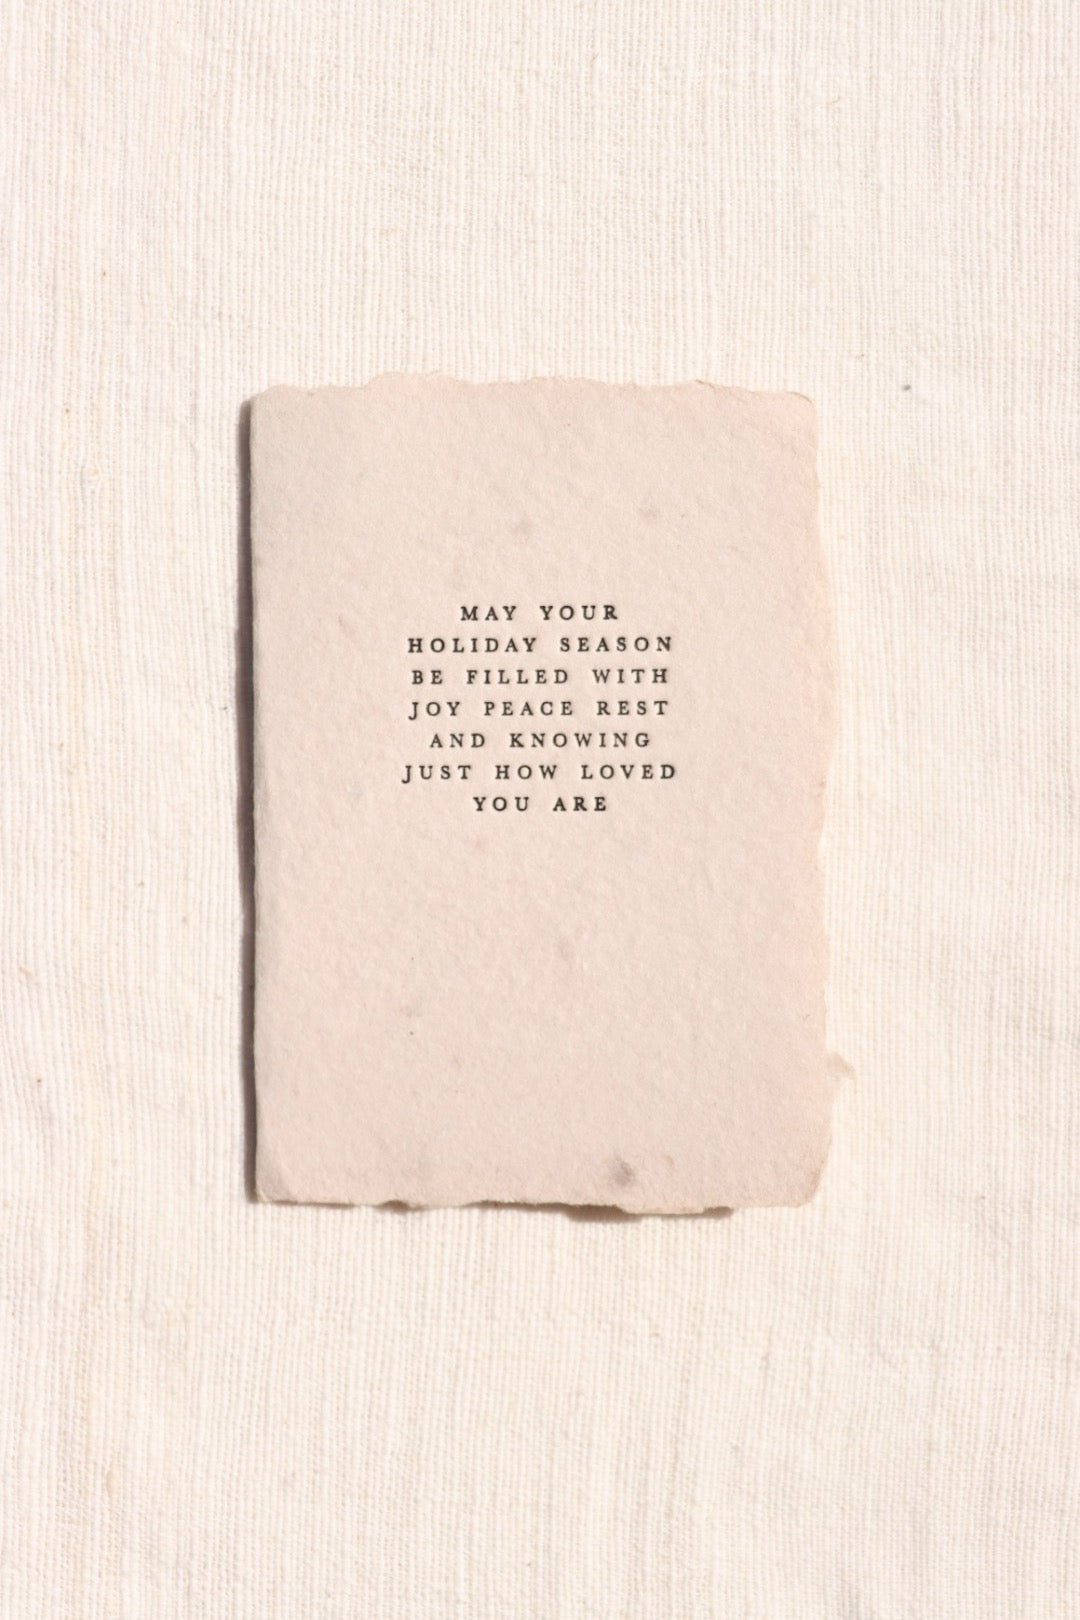 MAY YOUR
HOLIDAY SEASON
BE FILLED WITH
JOY PEACE REST
AND KNOWING
JUST HOW LOVED
YOU ARE